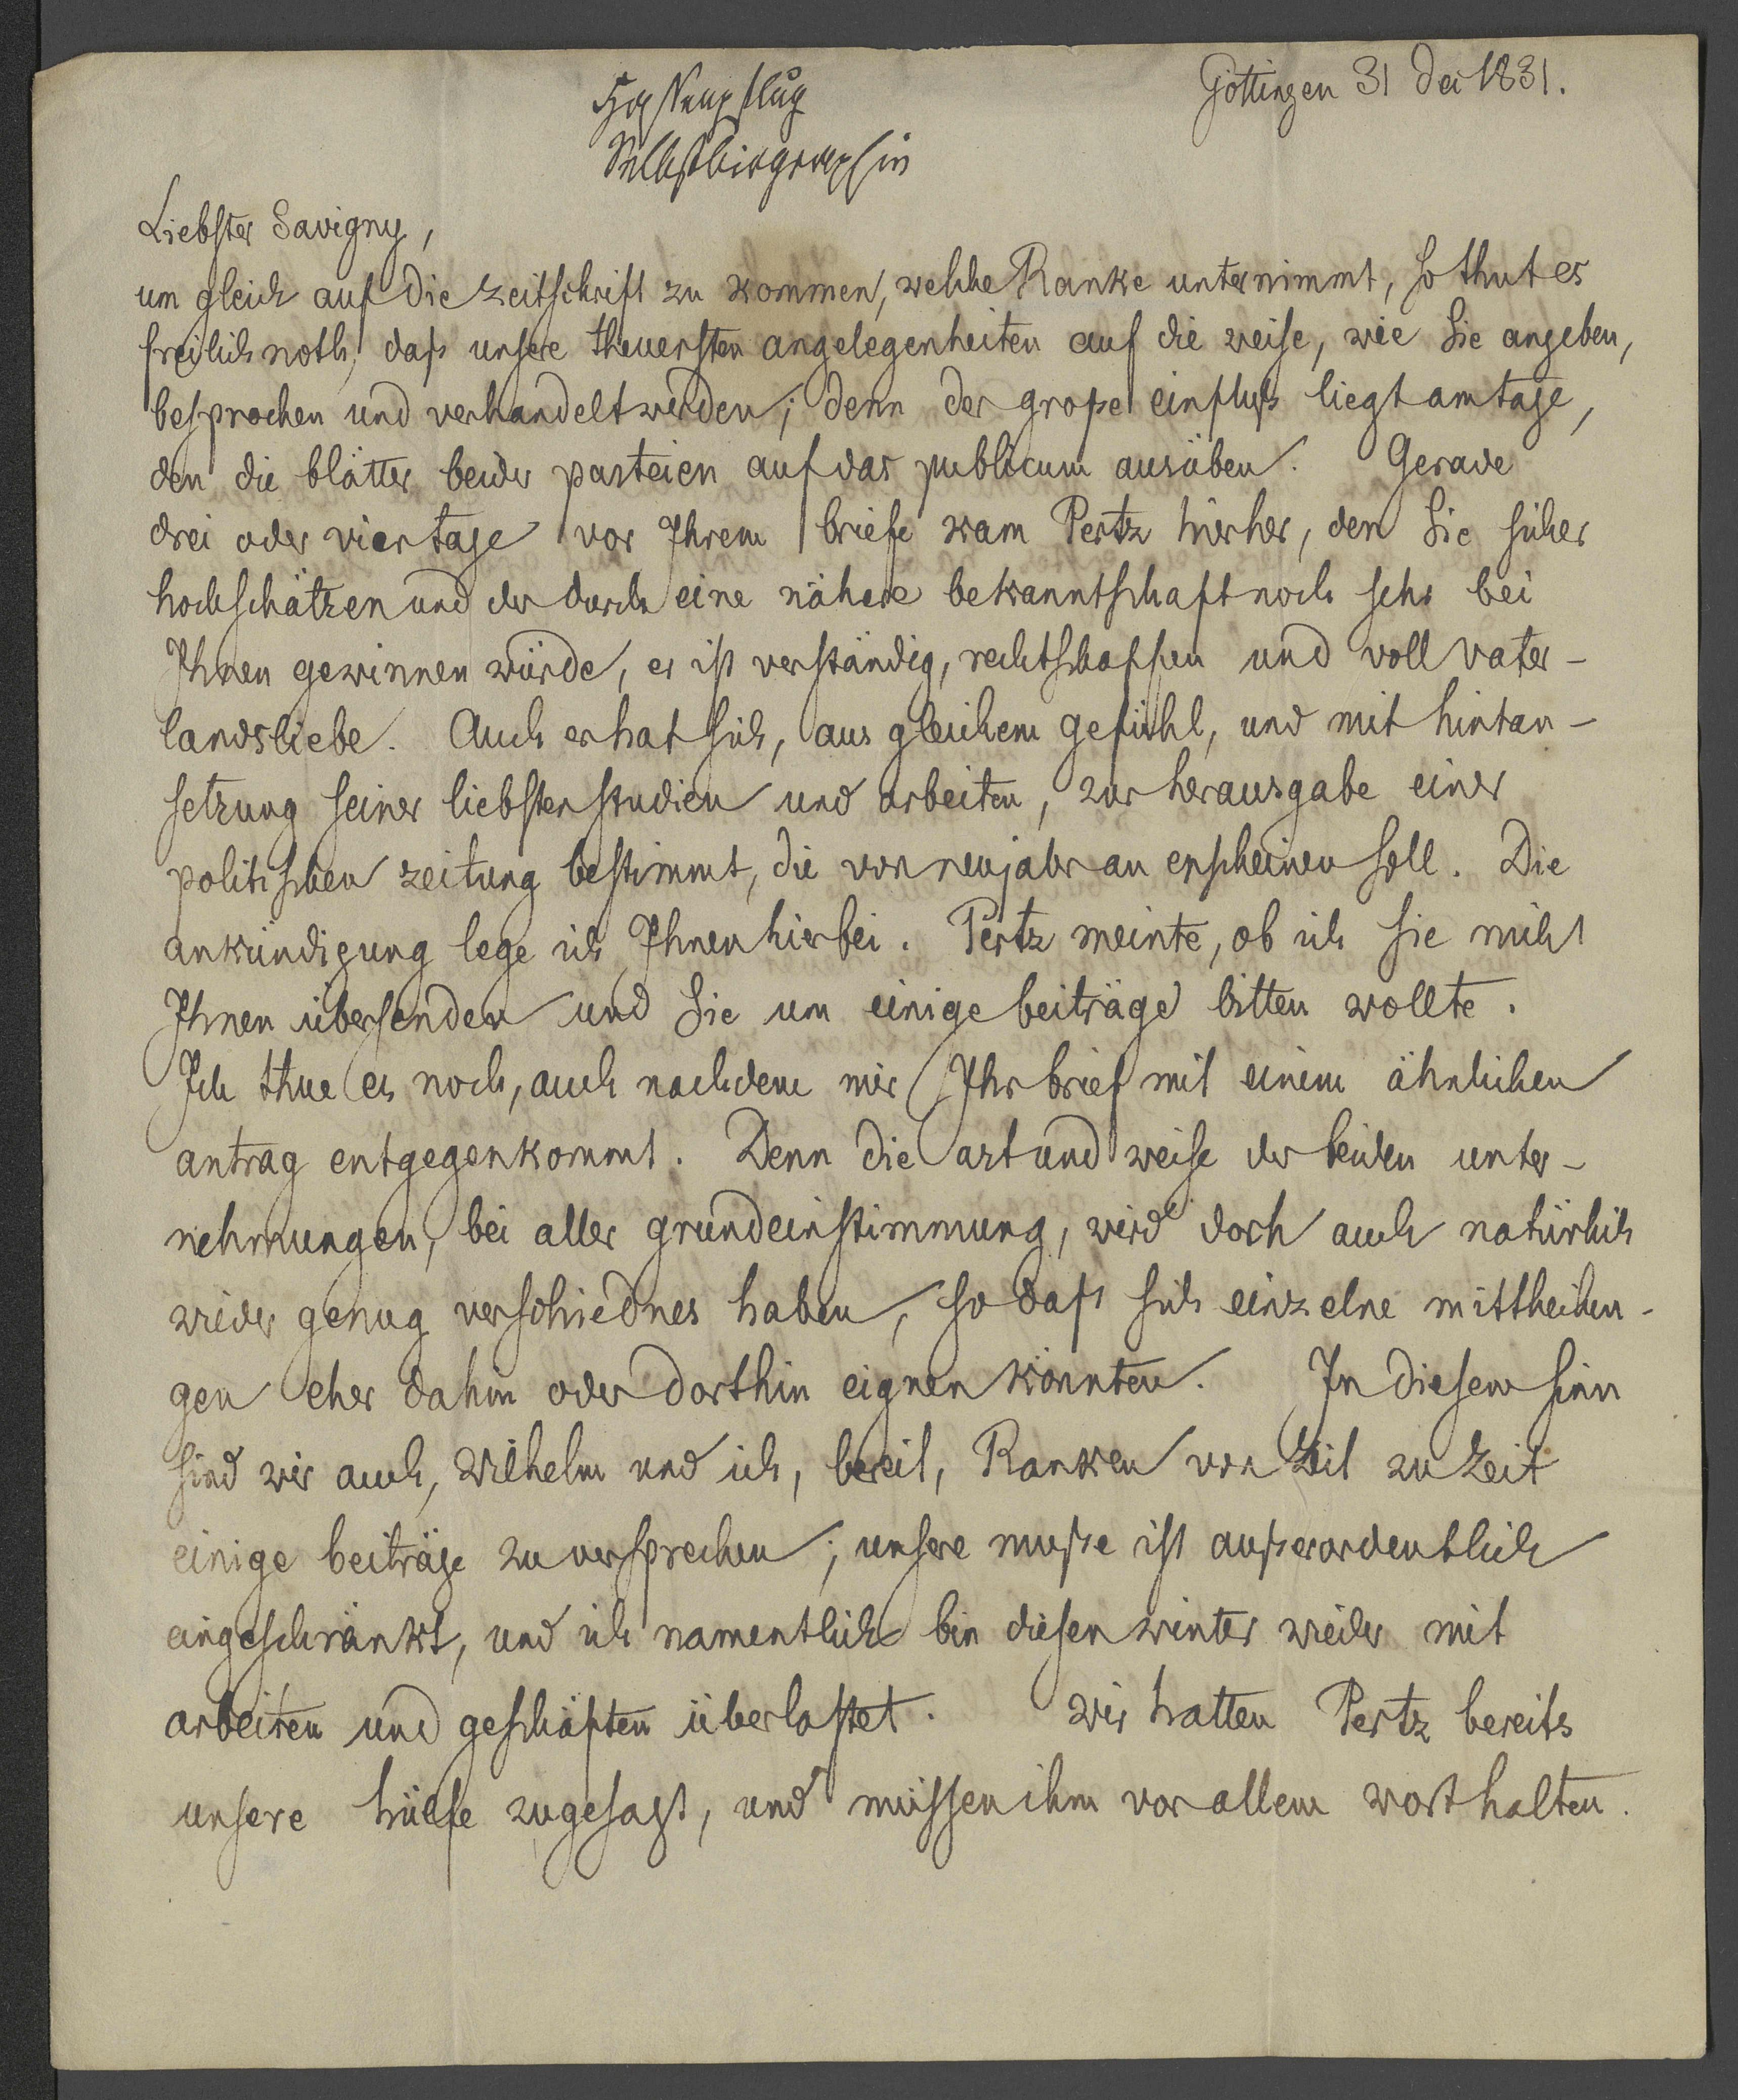 Göttingen 31 Dec 1831.
Selbstbiographie
Liebster Savigny,
um gleich auf die zeitschrift zu kommen, welche Ranke unternimmt, so thut es
freilich noth, daß unsere theuersten angelegenheiten auf die weise, wie Sie angeben,
besprochen und verhandelt werden; denn der große einfluß liegt am tage,
den die blätter beider parteien auf das publicum ausüben. Gerade
drei oder vier tage vor Ihrem briefe kam Pertz hierher, den Sie sicher
hochschätzen und der durch eine nähere bekanntschaft noch sehr bei
Ihnen gewinnen würde, er ist verständig, rechtschaffen und voll vater-
landsliebe. Auch er hat sich, aus gleichem gefühl, und mit hintan-
setzung seiner liebsten studien und arbeiten, zur herausgabe einer
politischen zeitung bestimmt, die von neujahr an erscheinen soll. Die
ankündigung lege ich Ihnen hierbei. Pertz meinte, ob ich sie nicht
Ihnen übersenden und Sie um einige beiträge bitten wollte.
Ich thue es noch, auch nachdem mir Ihr brief mit einem ähnlichen
antrag entgegenkommt. Denn die art und weise der beiden unter-
nehmungen, bei aller grundeinstimmung, wird doch auch natürlich
wieder genug verschiednes haben, so daß sich einzelne mittheilun-
gen eher dahin oder dorthin eignen könnten. In diesem sinn
sind wir auch, Wilhelm und ich, bereit, Ranken von Zeit zu Zeit
einige beiträge zu versprechen; unsere muße ist außerordentlich
eingeschränkt, und ich namentlich bin diesen winter wieder mit
arbeiten und geschäften überlastet. Wir hatten Pertz bereits
unsere hülfe zugesagt, und müssen ihm vor allem wort halten.